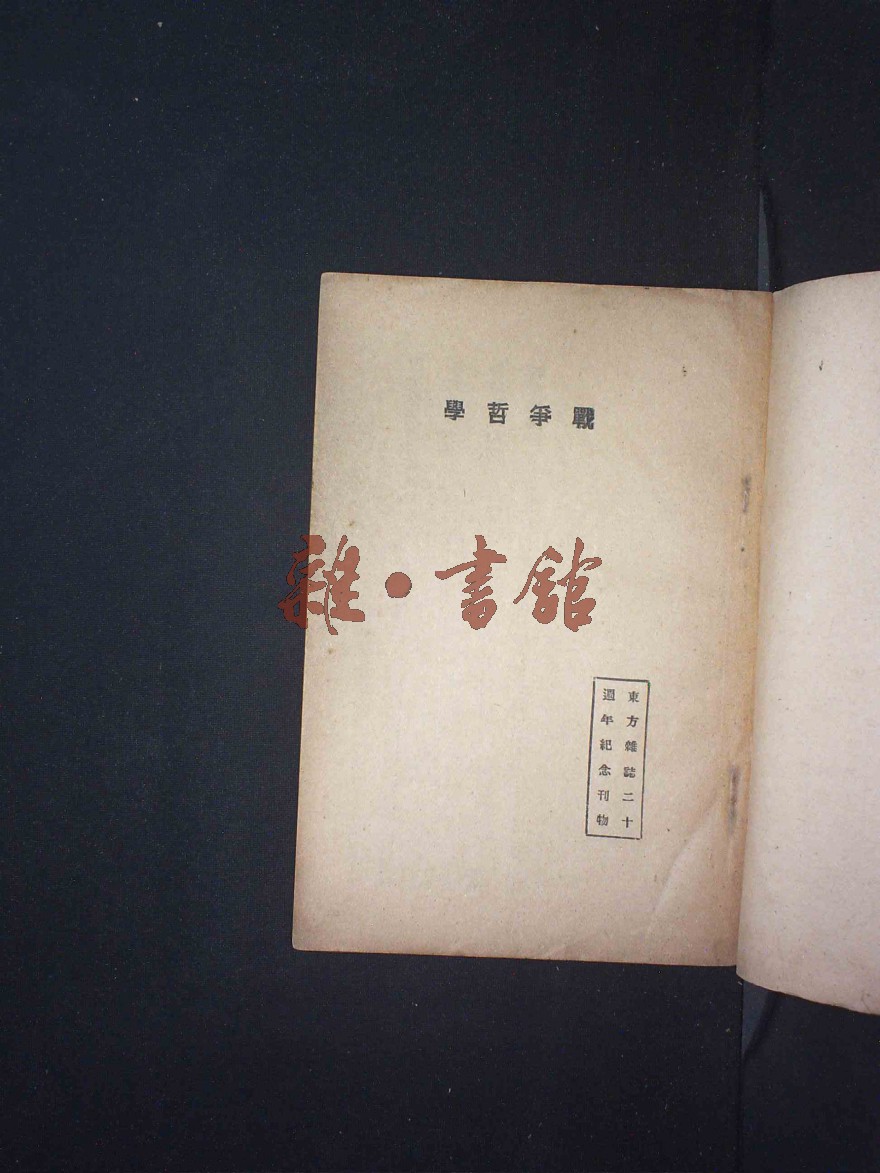 戰爭哲學
雜·書館
東方雜誌二十
週年紀念刊物